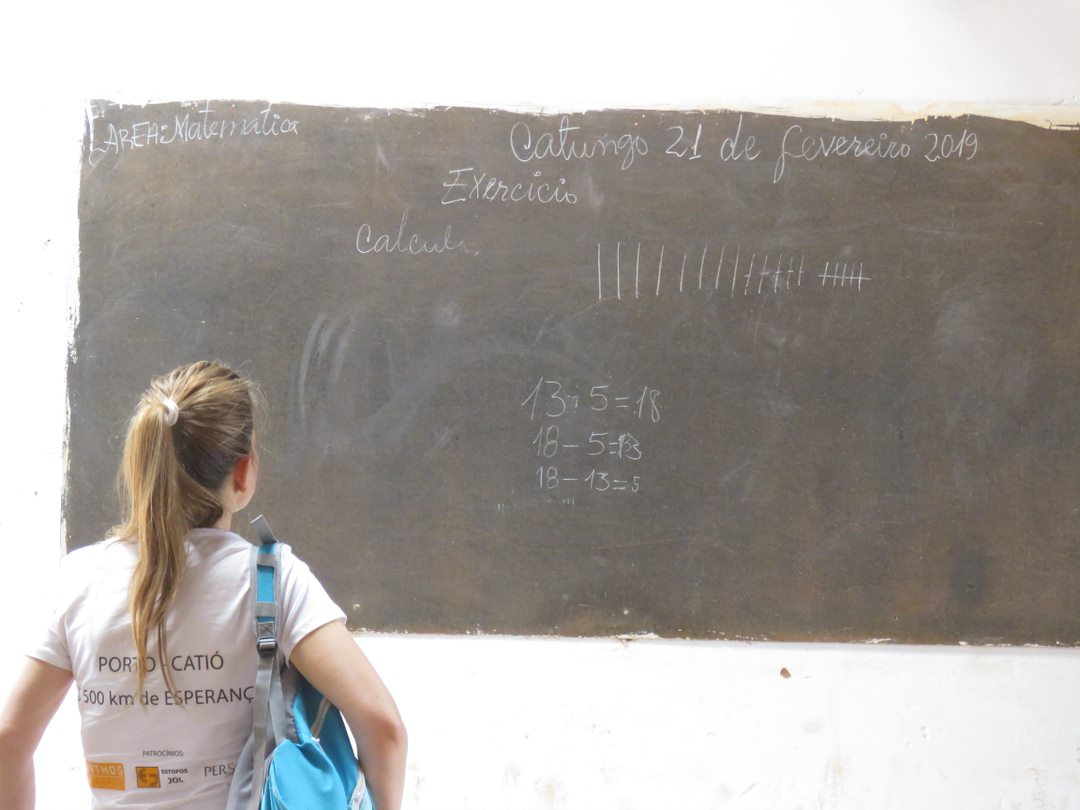 AREA: Matematica
Catungo 21 de fevereiro 2019
Exercicio
Calcula
13+5=18
18-5=13
18-13=5
PORTO - CATIÓ
500 km de ESPERANÇ
PATROCÍNIOS:
ESTOFOS
JOL
PERS